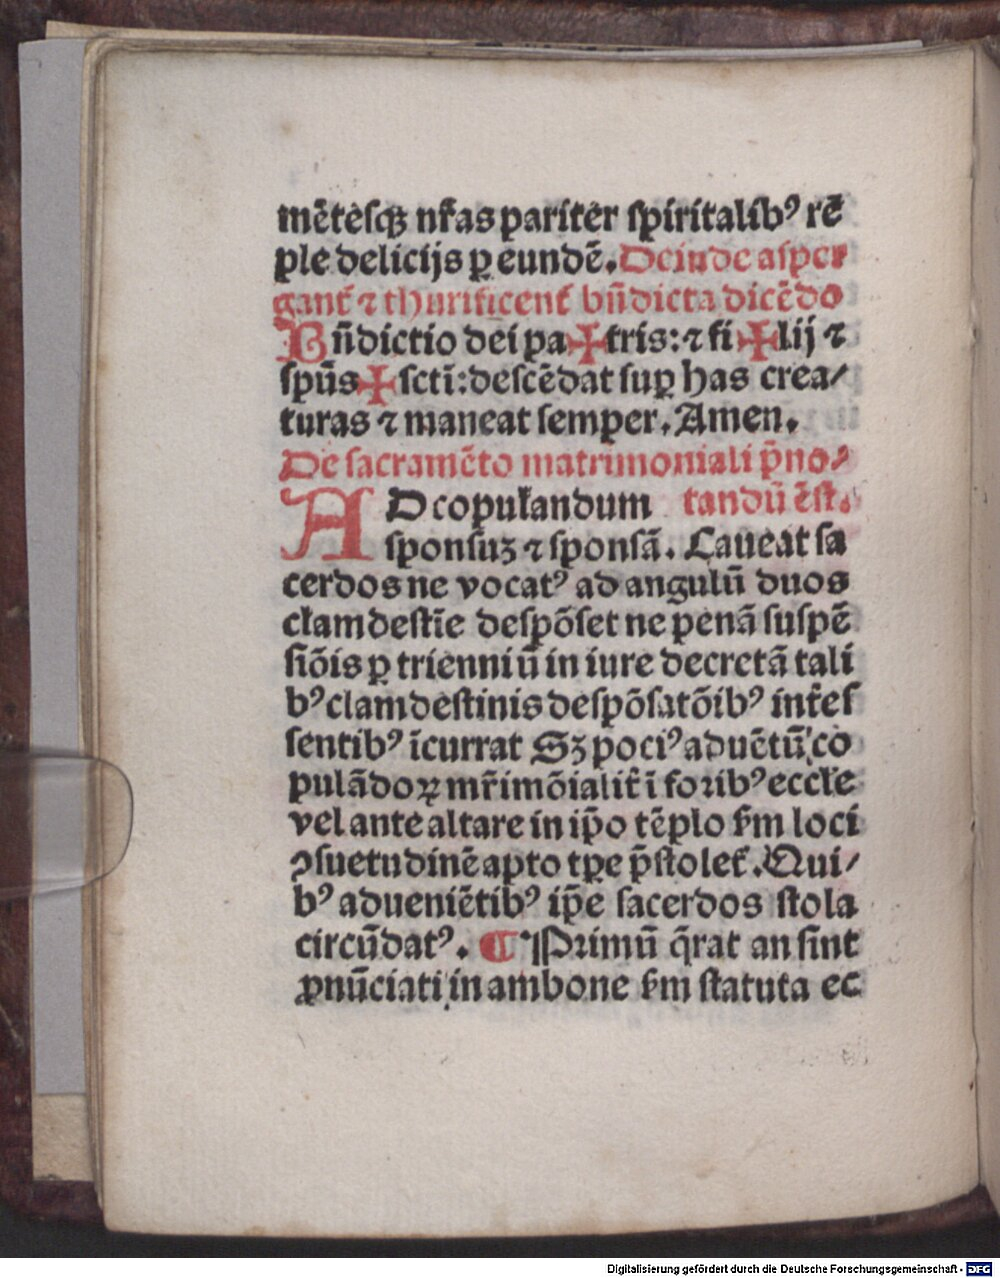 mētesqꝫ nr̄as pariter spiritalibꝰ rē
ple delicijs ꝑ eundē. Deinde asper
gant᷑ ⁊ thurificent᷑ bn̄dicta dicēdo
Bn̄dictio dei pa✠tris: ⁊ fi✠lij ⁊
spūs✠sctī: descēdat suꝑ has crea⸗
turas ⁊ maneat semper. Amen.
De sacramēto matrimoniali p̄no⸗
AD copulandum tandū ēst.
sponsuꝫ ⁊ sponsā. Caueat sa
cerdos ne vocatꝰ ad angulū duos
clamdestīe despōset ne penā suspē
siōis ꝑ trienniū in iure decretā tali
bꝰ clamdestinis despōsatōibꝰ inťes
sentibꝰ īcurrat Sꝫ pociꝰ aduētū co
pulādoꝝ mr̄imōialiť ī foribꝰ eccłe
vel ante altare in ip̄o tēplo ẜm loci
ꝯsuetudinē apto tꝑe p̄stolet᷑. Qui⸗
bꝰ adueniētibꝰ ip̄e sacerdos stola
circūdatꝰ. ¶ Primū q̄rat an sīnt
ꝓnūciati in ambone ẜm statuta ec
Digitalisierung gefördert durch die Deutsche Forschungsgemeinschaft - DFG